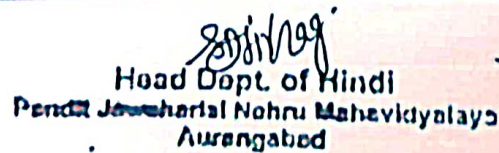 Head Dept. of Hindi
Pandit Jawaharlal Nehru Mahavidyalaya
Aurangabad